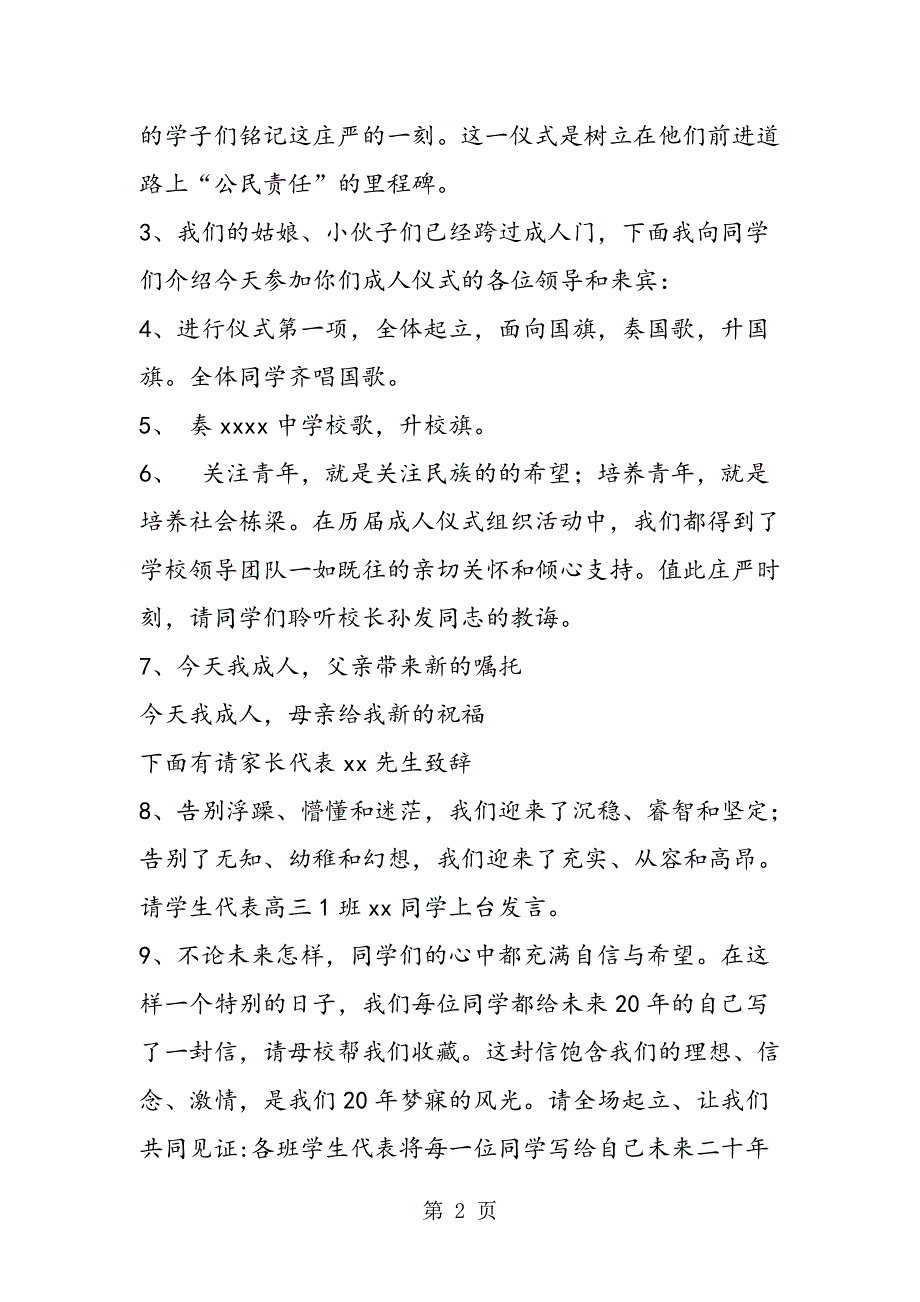 的学子们铭记这庄严的一刻。这一仪式是树立在他们前进道
路上“公民责任”的里程碑。
3、我们的姑娘、小伙子们已经跨过成人门，下面我向同学
们介绍今天参加你们成人仪式的各位领导和来宾：
4、进行仪式第一项，全体起立，面向国旗，奏国歌，升国
旗。全体同学齐唱国歌。
5、 奏 xxxx 中学校歌，升校旗。
6、  关注青年，就是关注民族的的希望；培养青年，就是
培养社会栋梁。在历届成人仪式组织活动中，我们都得到了
学校领导团队一如既往的亲切关怀和倾心支持。值此庄严时
刻，请同学们聆听校长孙发同志的教诲。
7、今天我成人，父亲带来新的嘱托
今天我成人，母亲给我新的祝福
下面有请家长代表 xx 先生致辞
8、告别浮躁、懵懂和迷茫，我们迎来了沉稳、睿智和坚定；
告别了无知、幼稚和幻想，我们迎来了充实、从容和高昂。
请学生代表高三 1 班 xx 同学上台发言。
9、不论未来怎样，同学们的心中都充满自信与希望。在这
样一个特别的日子，我们每位同学都给未来 20 年的自己写
了一封信，请母校帮我们收藏。这封信饱含我们的理想、信
念、激情，是我们 20 年梦寐的风光。请全场起立、让我们
共同见证:各班学生代表将每一位同学写给自己未来二十年
第 2 页